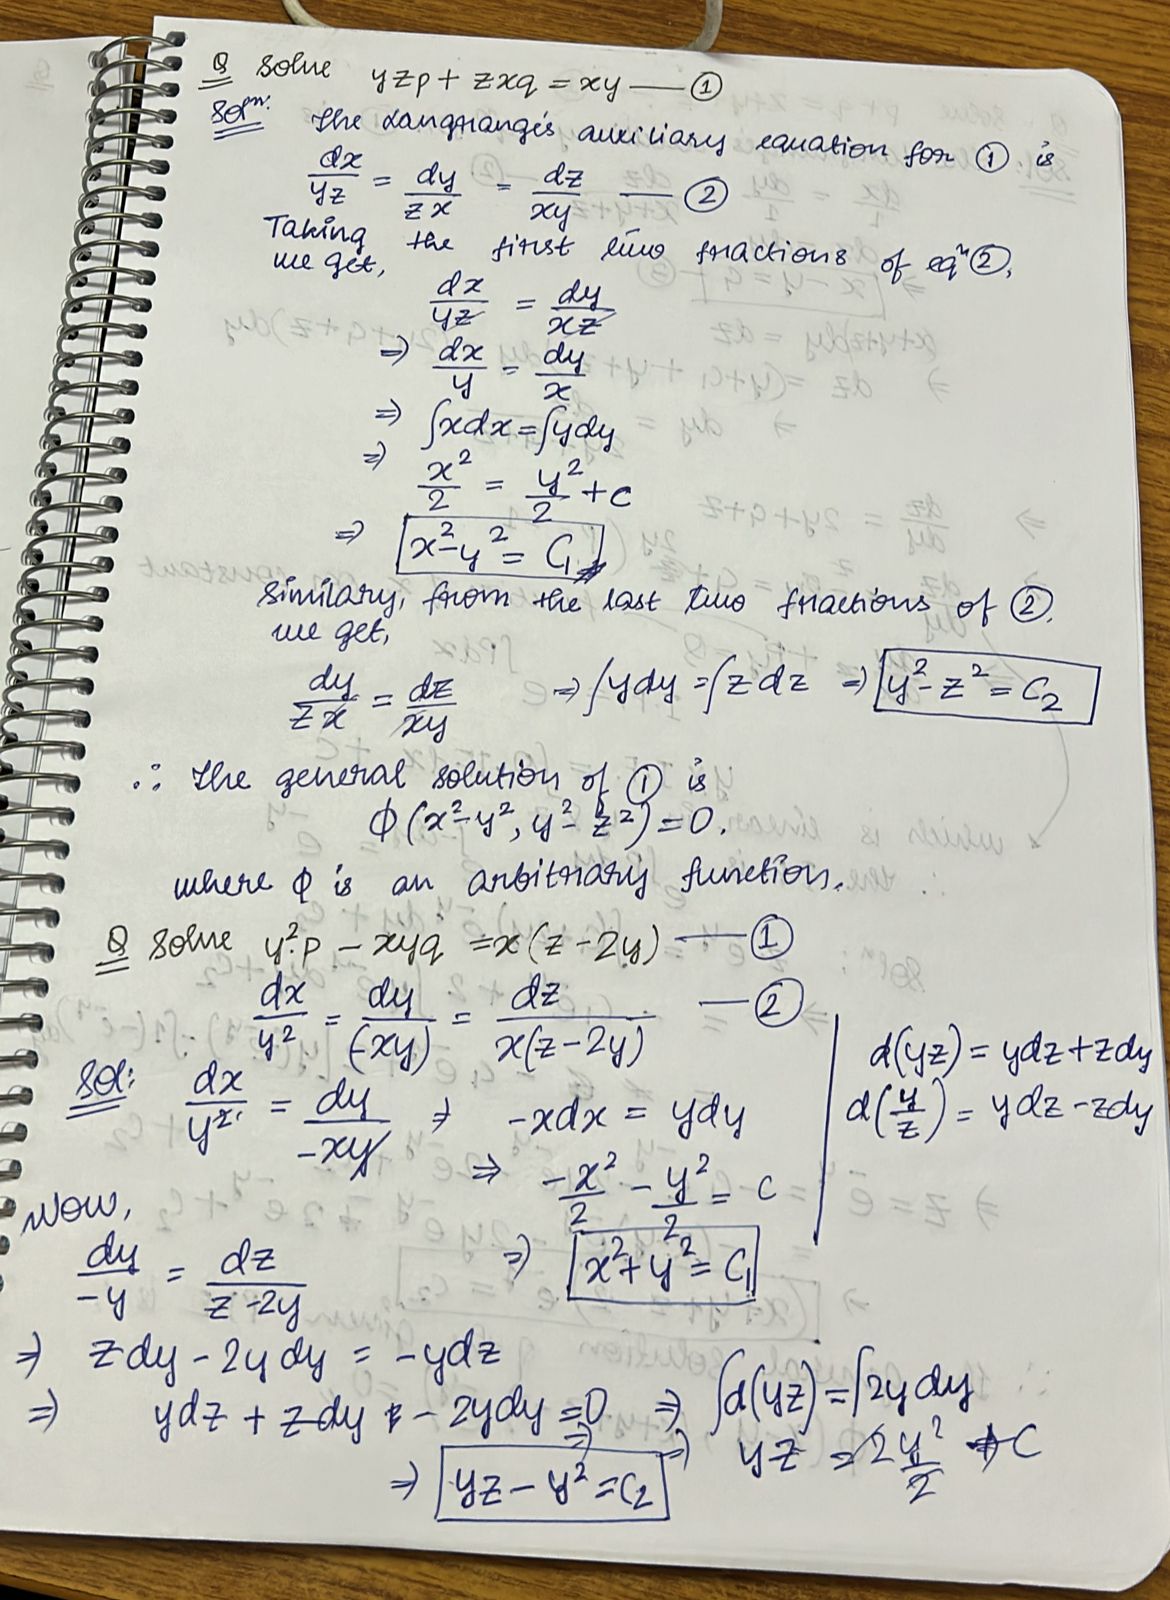 Q Solve yzp + zxq = xy — ①
Solⁿ: The Langrange's auxiliary equation for ① is
dx/yz = dy/zx = dz/xy — ②
Taking the first two fractions of eqⁿ ②,
we get,
dx/yz = dy/xz
⇒ dx/y = dy/x
⇒ ∫xdx = ∫ydy
⇒ x²/2 = y²/2 + C
⇒ x² - y² = C₁
Similary, from the last two fractions of ②.
we get,
dy/zx = dz/xy ⇒ ∫ydy = ∫zdz ⇒ y² - z² = C₂
∴ The general solution of ① is
ϕ(x² - y², y² - z²) = 0.
where ϕ is an arbitrary function.
Q Solve y²p - xyq = x(z - 2y) — ①
dx/y² = dy/(-xy) = dz/x(z - 2y) — ②
Sol: dx/y² = dy/-xy ⇒ -xdx = ydy
d(yz) = ydz + zdy
d(y/z) = ydz - zdy
⇒ -x²/2 - y²/2 = C
⇒ x² + y² = C₁
Now,
dy/-y = dz/z - 2y
⇒ zdy - 2ydy = -ydz
⇒ ydz + zdy - 2ydy = 0 ⇒ ∫d(yz) = ∫2ydy
⇒ yz = 2y²/2 + C
⇒ yz - y² = C₂